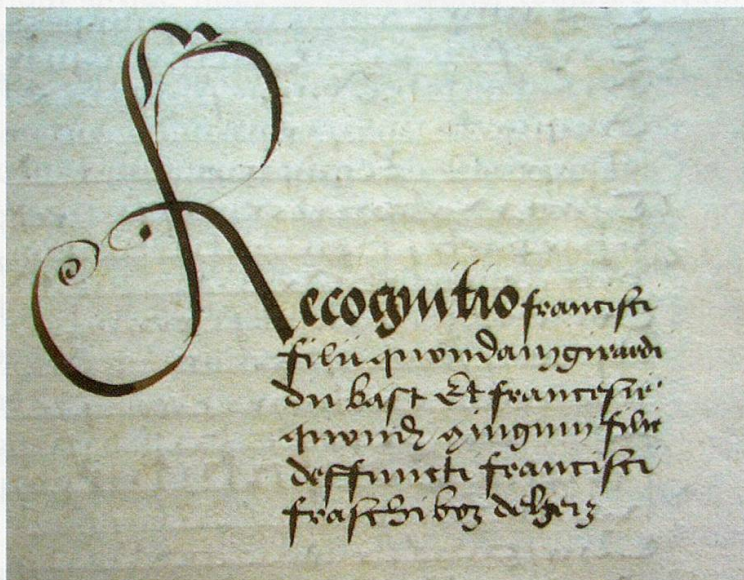 Recognitio francisci
filii quondam girardi
du bast Et francesie
quond filie
deffuncti francisci
fraschiboz